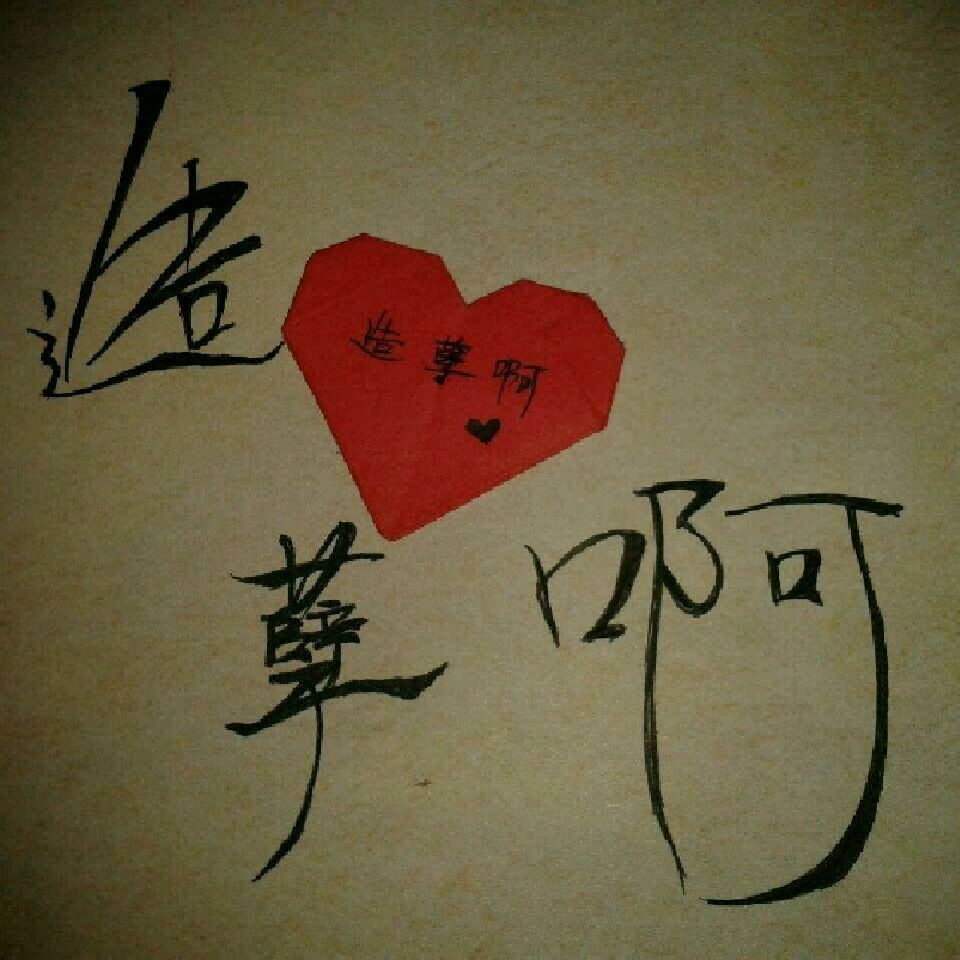 造
造孽啊
孽啊